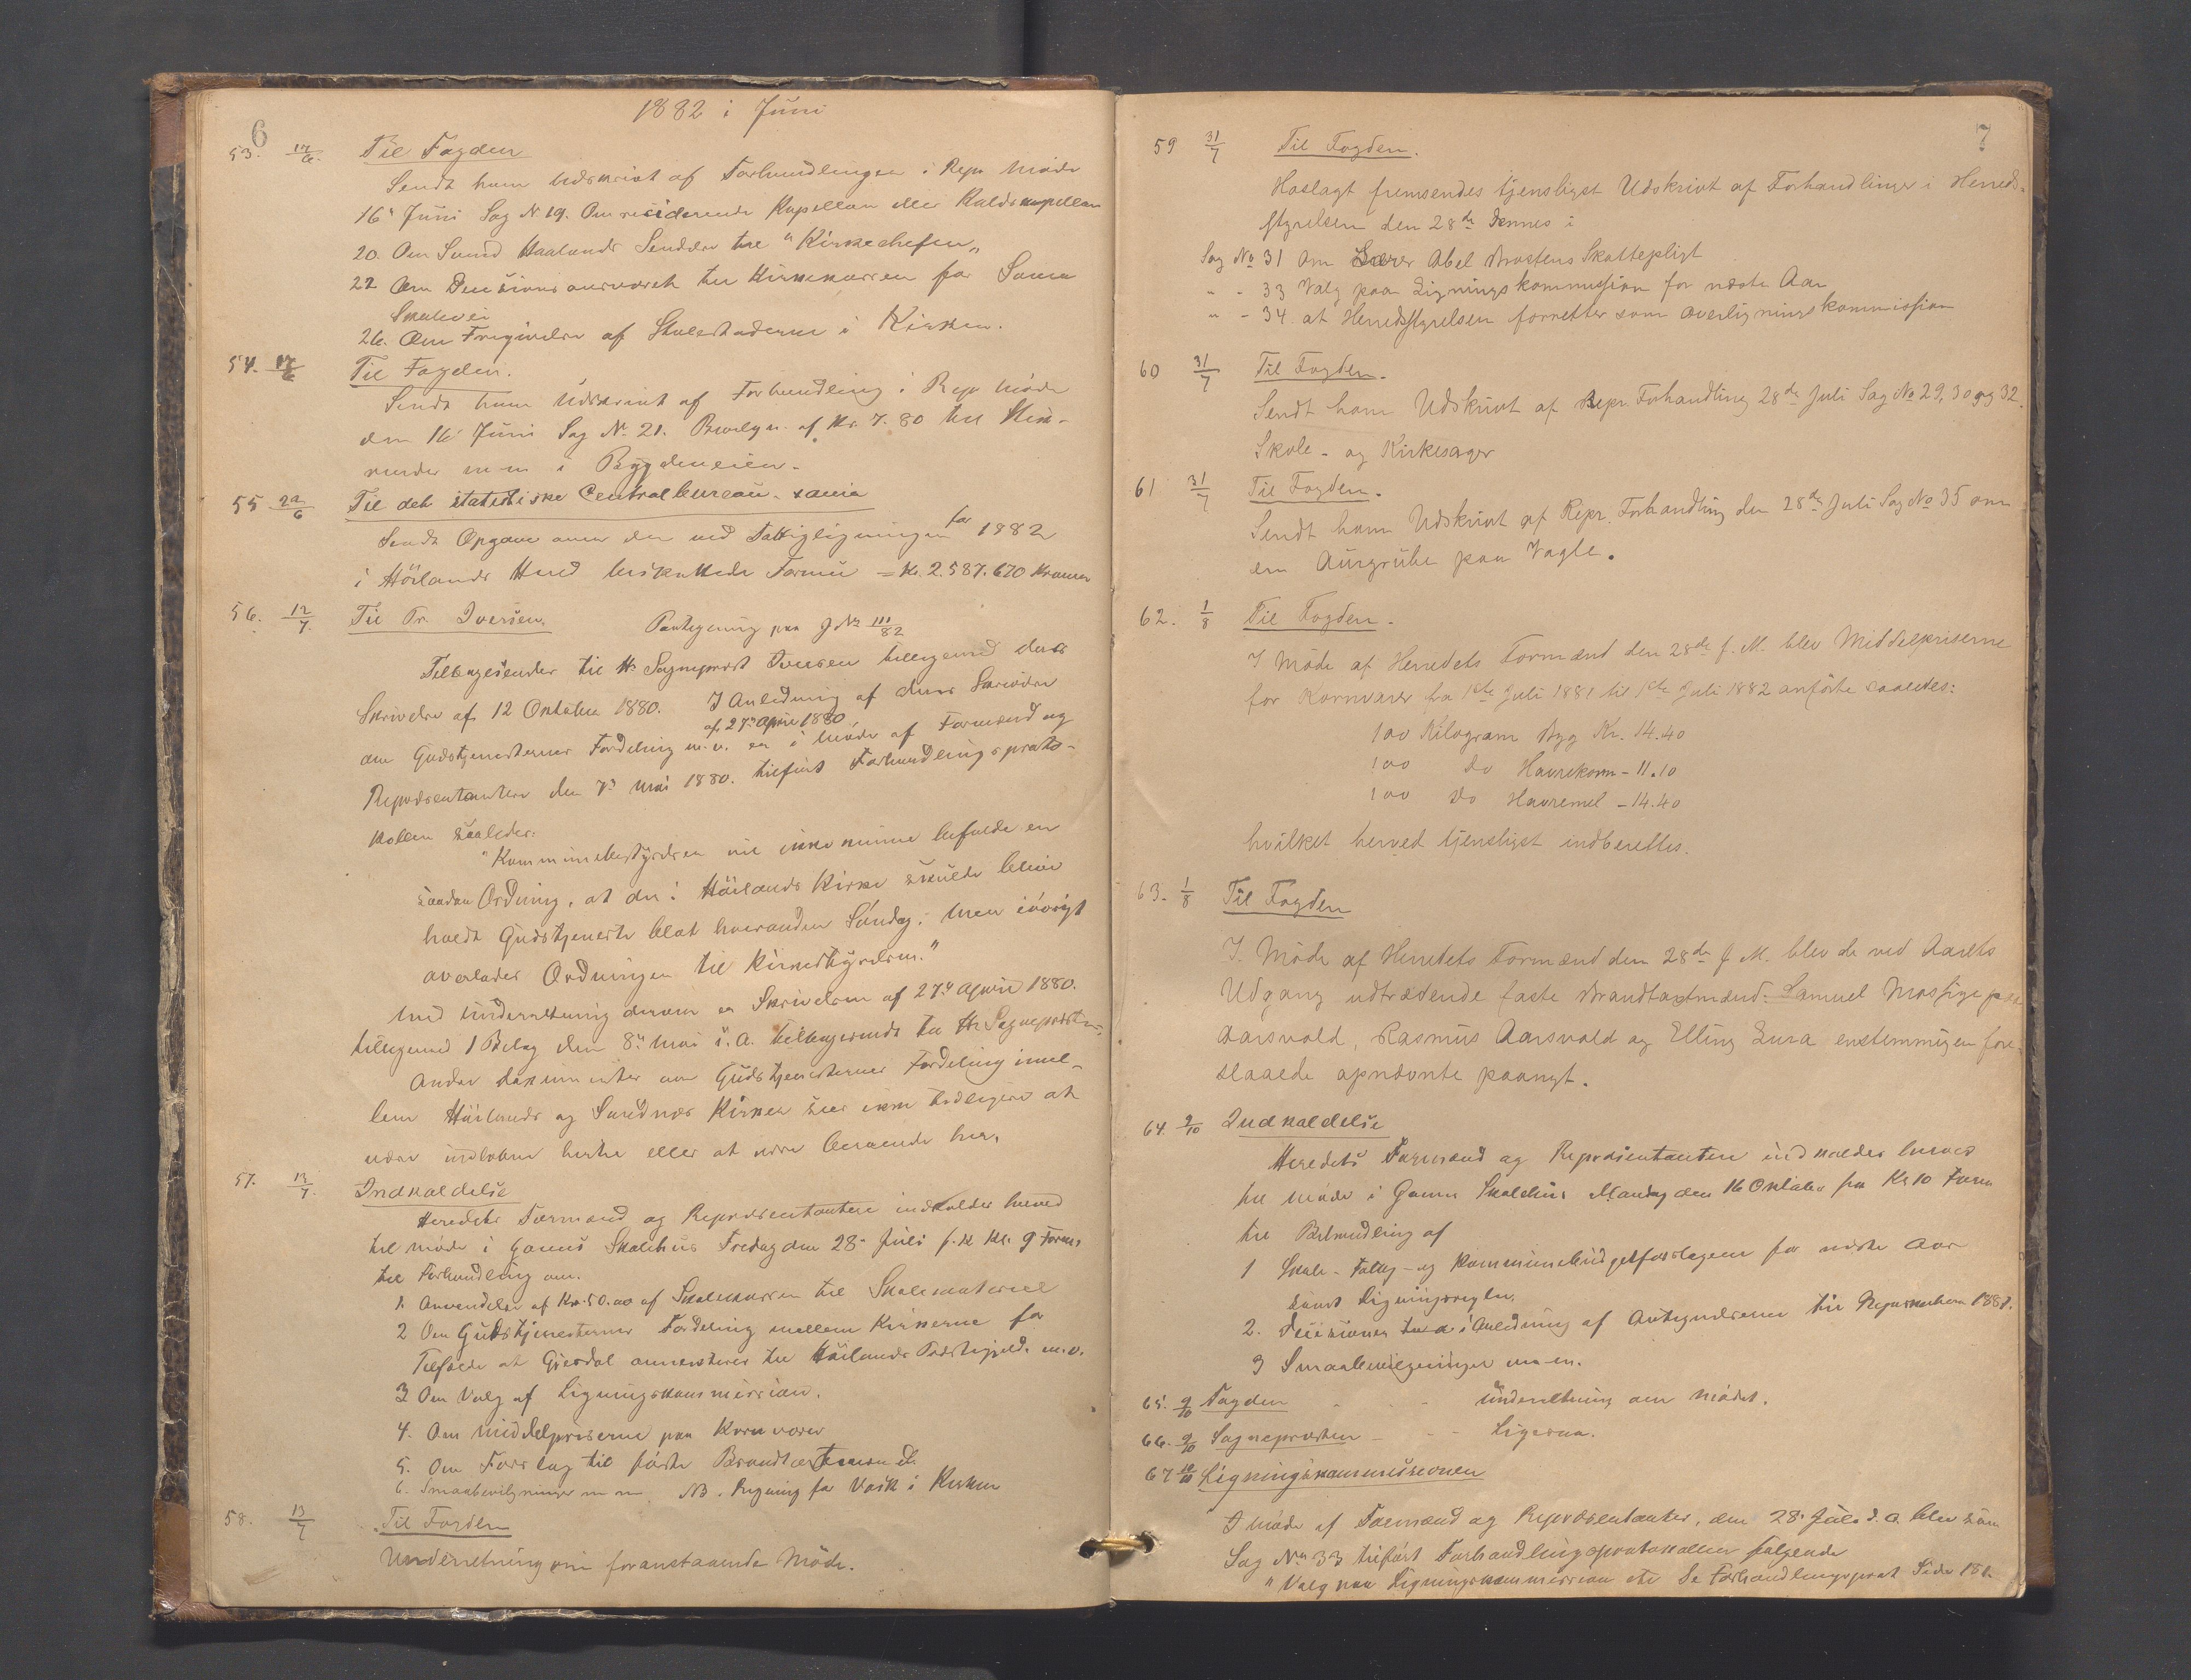 6
1882 i Juni
53. 17/6. Til Fogden
Sendt ham Udskrivt af Forhandlingen i Repr Møde
16' Juni Sag N 19. Om residerende Kapellan eller Kaldskapellan
20. Om Svend Haalands Sendelse til "Kirkechefen"
22 Om Decisions til Kirkekassen for
Skolevei
26. Om Frigivelse af Stolestaderne i Kirken.
54. 17/6 Til Fogden.
Sendt ham Udskrivt af Forhandling i Repr Møde
den 16' Juni Sag N. 21. Bevilgn. af Kr. 7.80 til
m m i Bygdeveien.
55. 22/6 Til det statistiske Centralbureau
Sendt Opgave over den ved Fattigligningen for 1882
i Höilands Hered beskattede Formue = Kr. 2.587.670 Kroner
56. 12/7. Til Pr. Iversen. Paategning paa J No 111/82
Tilbagesendes til Hr Sogneprest Iversen tilligemed deres
Skrivelse af 12 Oktober 1880. I Anledning af deres Skrivelse
af 27' April 1880
om Gudstjenesternes Fordeling m.v. er i Møde af Formænd og
Repræsentantere den 7' Mai 1880. tilført Forhandlingsproto-
kollen saaledes:
"Kommunebestyrelsen vil ikke kunne befale en
saadan Ordning, at der i Höilands Kirke skulde blive
holdt Gudstjeneste blot hverandre Søndag; men iøvrigt
overlades Ordningen til Kirkestyrelsen."
Med Underretning derom er Skrivelsen af 27' April 1880.
tilligemed 1 Bilag den 8' Mai s. A. tilbagesendt til Hr Sognepresten.
Andre Dokumenter om Gudstjenesternes Fordeling imel-
lem Höilands og Sandnes Kirker sees ikke tidligere at
være indkomne hertil eller at være beroende her.
57. 13/7. Indkaldelse
Heredets Formænd og Repræsentantere indkaldes herved
til Møde i Ganns Skolehus Fredag den 28' Juli f. k Kl. 9 Form
til Forhandling om.
1. Anvendelse af Kr. 50.00 af Skolekassen til Skolemateriel
2 Om Gudstjenesternes Fordeling mellem Kirkerne for
Tilfælde at Gjesdal annekteres til Höilands Prestegjeld. m.v.
3 Om Valg af Ligningskommission.
4. Om Middelpriserne paa Kornvarer
5. Om Forslag til faste Brandtaxtmænd.
6. Smaabevilgninger m m NB. Regning for Vask i Kirken
58. 13/7 Til Fogden
Underretning om foranstaaende Møde.
7
59 31/7 Til Fogden.
Hoslagt fremsendes tjensligst Udskrivt af Forhandlinger i Hereds-
styrelsen den 28de dennes i
Sag No 31 Om Lærer Abel Brostens Skattepligt
" - 33 Valg paa Ligningskommission for næste Aar
" - 34. at Heredsstyrelsen forretter som Overligningskommission
60 31/7 Til Fogden.
Sendt ham Udskrivt af Repr. Forhandling 28de Juli Sag No 29, 30 og 32.
Skole- og Kirkesager
61 31/7 Til Fogden.
Sendt ham Udskrivt af Repr. Forhandling den 28de Juli Sag No 35 om
en Aurgrube paa Vagle.
62. 1/8 Til Fogden.
I Møde af Heredets Formænd den 28de f. M. blev Middelpriserne
for Kornvarer fra 1ste Juli 1881 til 1ste Juli 1882 anførte saaledes:
100 Kilogram Byg Kr. 14.40
100 Do Havrekorn - 11.10
100 Do Havremel - 14.40
hvilket herved tjensligst indberettes.
63. 1/8 Til Fogden
I. Møde af Heredets Formænd den 28de f. M. blev de ved Aarets
Udgang udtrædende faste Brandtaxtmænd: Samuel Mossige paa
Aarsvold, Rasmus Aarsvold og Elling Lura enstemmigen fore-
slaaede opnævnte paanyt.
64. 9/10 Indkaldelse
Heredets Formænd og Repræsentantere indkaldes herved
til Møde i Ganns Skolehus Mandag den 16 Oktober fra Kl 10 Form
til Behandling af
1 Skole- Fattig- og Kommunebudgetforslagene for næste Aar
samt Ligningsregler.
2. Decisioner i Anledning af Antegnelserne til Regnskaberne 1881.
3 Smaabevilgninger m-m.
65. 9/10 Fogden - - Underretning om Mødet.
66. 9/10 Sognepresten - - - Ligesaa.
67 10/10 Ligningskommissionen
I Møde af Formænd og Repræsentanter, den 28' Juli d. A. blev som
Sag No 33 tilført Forhandlingsprotokollen følgende
"Valg paa Ligningskommission etc Se Forhandlingsprot Side 181.